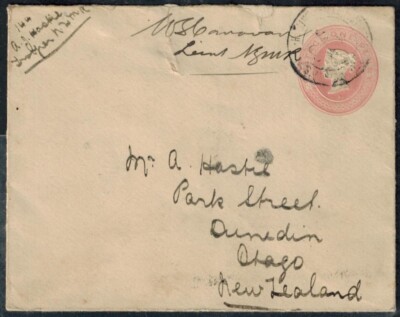 A. Hastie
W S Canavan
Lieut
Mr. A. Hastie
Park Street.
Dunedin
Otago
New Zealand